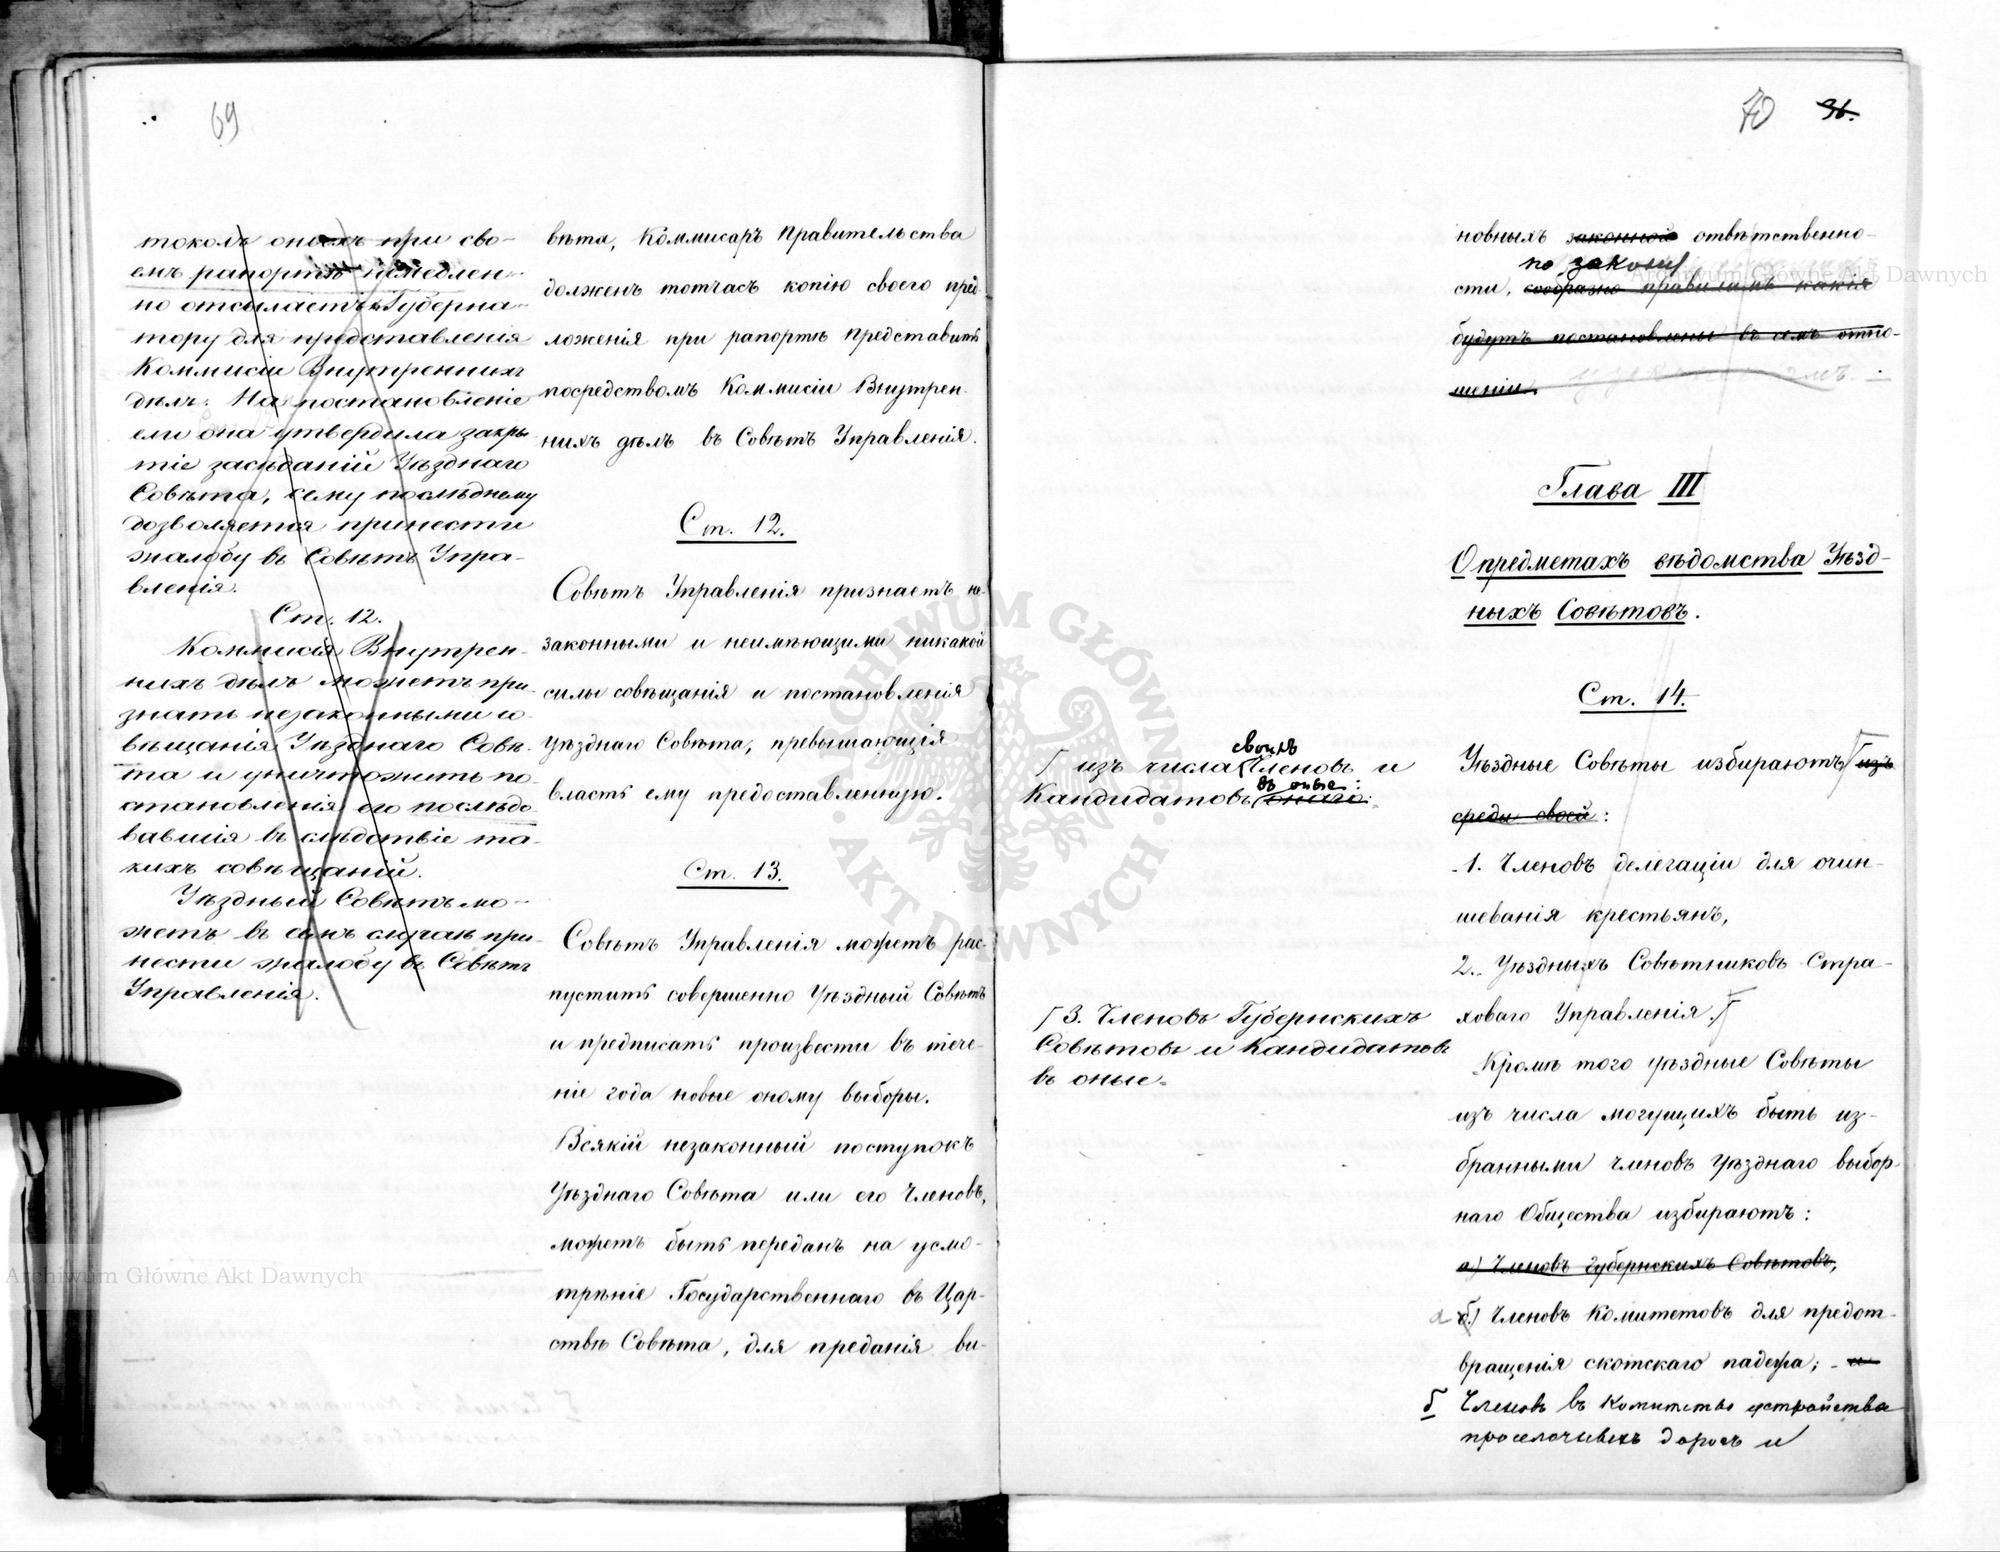 69
токолъ оныхъ при сво-
емъ рапортѣ немедлен-
но отсылаетъ Губерна-
тору для представленія
Коммисіи Внутреннихъ
дѣлъ. На постановленіе
ели она утвердила закры-
тіе засѣданій Уѣзднаго
Совѣта, сему послѣднему
дозволяется принести
жалобу въ Совѣтъ Упра-
вленія.
Ст. 12.
Коммисія Внутрен-
нихъ дѣлъ можетъ при-
знать незаконными со-
вѣщанія Уѣзднаго Совѣ-
та и уничтожить по-
становленія его послѣдо-
вавшія въ слѣдствіе та-
кихъ совѣщаній.
Уѣздный Совѣтъ мо-
жетъ въ семъ случаѣ при-
нести жалобу въ Совѣтъ
Управленія.
вѣта, Коммисаръ Правительства
долженъ тотчасъ копію своего пред-
ложенія при рапортѣ представить
посредствомъ Коммисіи Внутрен-
нихъ дѣлъ въ Совѣтъ Управленія.
Ст. 12.
Совѣтъ Управленія признаетъ не-
законными и неимѣющими никакой
силы совѣщанія и постановленія
уѣзднаго Совѣта, превышающія
власть ему предоставленную.
Ст. 13.
Совѣтъ Управленія можетъ рас-
пустить совершенно Уѣздный Совѣтъ
и предписать произвести въ тече-
ніе года новые оному выборы.
Всякій незаконный поступокъ
Уѣзднаго Совѣта или его Членовъ,
можетъ быть переданъ на усмо-
трѣніе Государственнаго въ Цар-
ствѣ Совѣта, для преданія ви-
70 36.
новныхъ законной отвѣтственно-
по закону
сти, сообразно правиламъ какія
будутъ постановлены въ семъ отно-
шеніи.
Глава III
О предметахъ вѣдомства Уѣзд-
ныхъ Совѣтовъ.
Ст. 14.
Уѣздные Совѣты избираютъ изъ
среды своей:
1. Членовъ делегаціи для очин-
шеванія крестьянъ,
2. Уѣздныхъ Совѣтниковъ Стра-
ховаго Управленія.
Кромѣ того уѣздные Совѣты
изъ числа могущихъ быть из-
бранными членовъ уѣзднаго выбор-
наго Общества избираютъ:
а) Членовъ Губернскихъ Совѣтовъ,
а б) Членовъ Комитетовъ для предот-
вращенія скотскаго падежа; и
б Членовъ въ Комитетъ устройства
проселочныхъ дорогъ и
своихъ
изъ числа Членовъ и
въ оные:
Кандидатовъ онаго:
3. Членовъ Губернскихъ
Совѣтовъ и Кандидатовъ
въ оные.
Archiwum Główne Akt Dawnych
Archiwum Główne Akt Dawnych
ARCHIWUM GŁÓWNE
AKT DAWNYCH